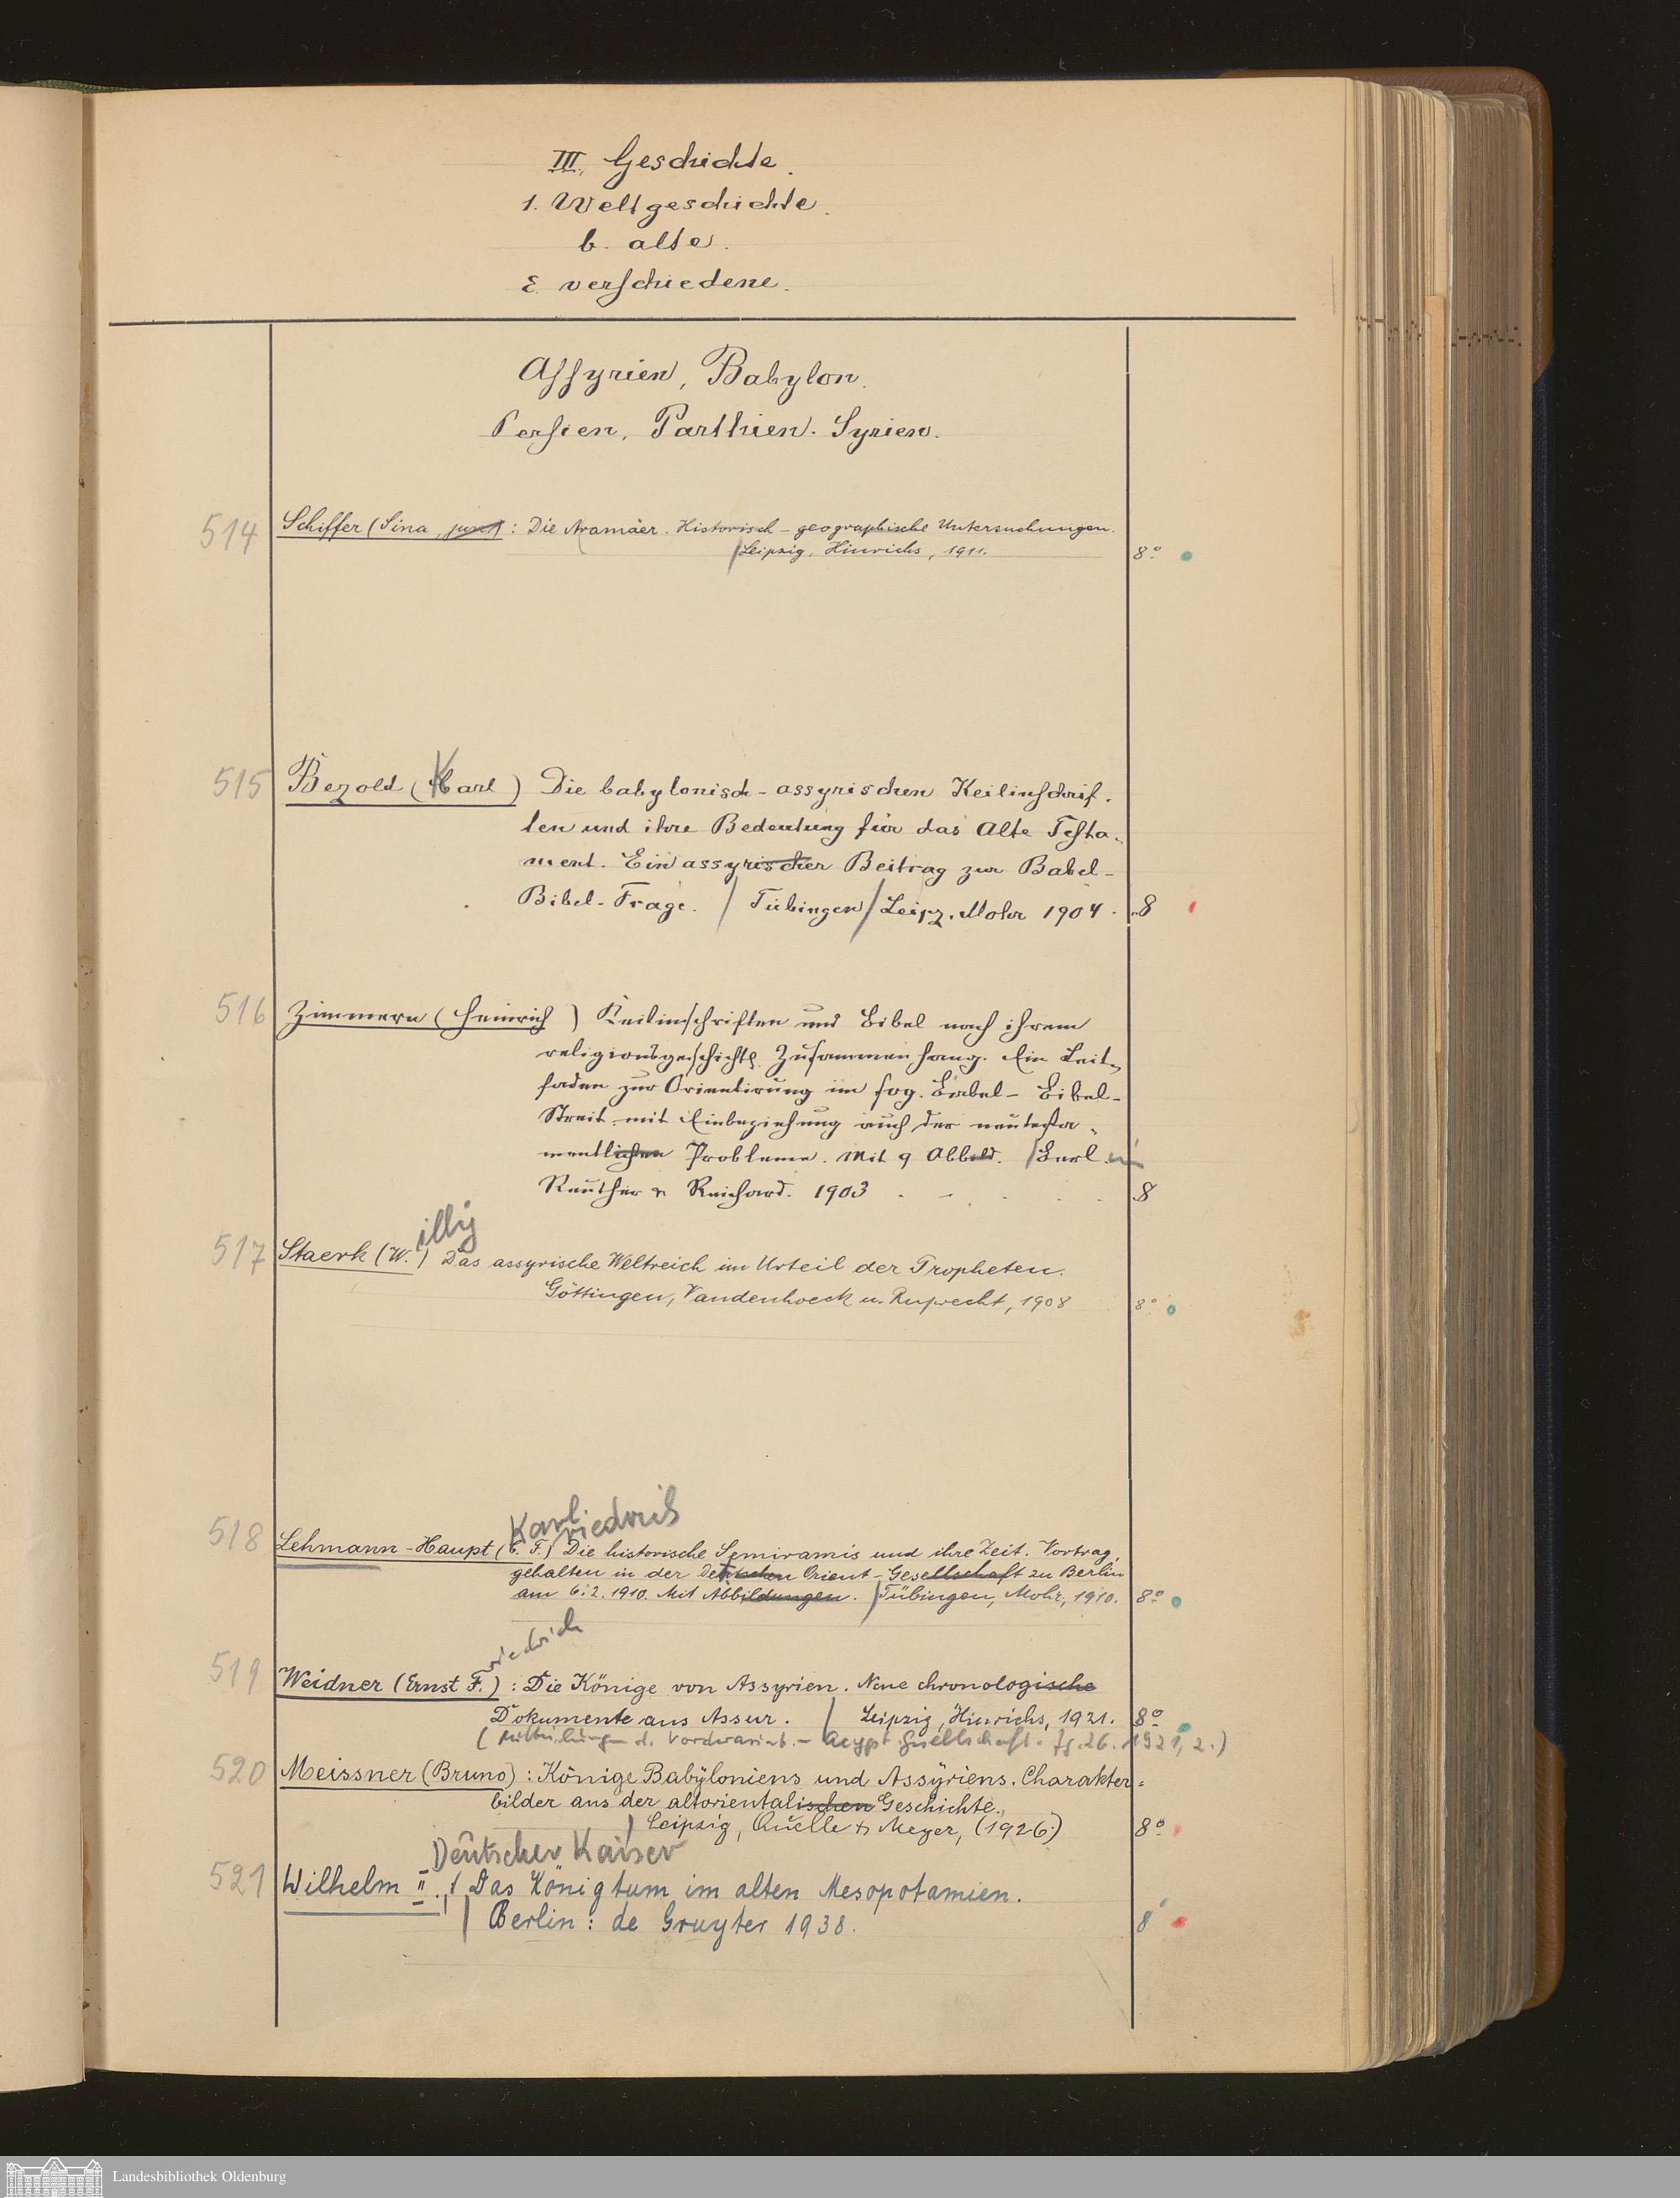 III. Geschichte.
1. Weltgeschichte.
b. alte.
ε. verschiedene.
Assyrien, Babylon.
Persien, Parthien. Syrien.
514 Schiffer (Sina, jun.) : Die Aramäer. Historisch-geographische Untersuchungen.
Leipzig, Hinrichs, 1911. 8°
515 Bezold (Karl) Die babylonisch-assyrischen Keilinschrif-
ten und ihre Bedeutung für das Alte Testa-
ment. Ein assyrischer Beitrag zur Babel-
Bibel-Frage. / Tübingen / Leipz. Mohr 1904. 8
516 Zimmern (Heinrich) Keilinschriften und Bibel nach ihrem
religionsgeschichtl. Zusammenhang. Ein Leit-
faden zur Orientirung im sog. Babel-Bibel-
Streit mit Einbeziehung auch der neutesta-
mentlichen Probleme. Mit 9 Abbild. / Berl.
Reuther & Reichard. 1903 8
illy
517 Staerk (W.) Das assyrische Weltreich im Urteil der Propheten.
Göttingen, Vandenhoeck u. Ruprecht, 1908 8°
Karl riedrich
518 Lehmann-Haupt (C. F.) Die historische Semiramis und ihre Zeit. Vortrag,
gehalten in der Deutschen Orient-Gesellschaft zu Berlin
am 6.2.1910. Mit Abbildungen. / Tübingen, Mohr, 1910. 8°
riedrich
519 Weidner (Ernst F.) : Die Könige von Assyrien. Neue chronologische
Dokumente aus Assur. / Leipzig, Hinrichs, 1921. 8°
(Mitteilungen d. Vorderasiat.-Aegypt. Gesellschaft. Jg. 26. 1921, 2.)
520 Meissner (Bruno) : Könige Babyloniens und Assyriens. Charakter=
bilder aus der altorientalischen Geschichte.
/ Leipzig, Quelle & Meyer, (1926.) 8°
Deutscher Kaiser
521 Wilhelm II., / Das Königtum im alten Mesopotamien.
/ Berlin: de Gruyter 1938. 8°
Landesbibliothek Oldenburg